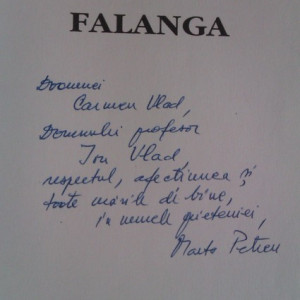 FALANGA
Doamnei
Carmen Vlad,
Domnului profesor
Ion Vlad,
respectul, afecțiunea și
toate urările de bine,
în numele prieteniei,
Marta Petreu